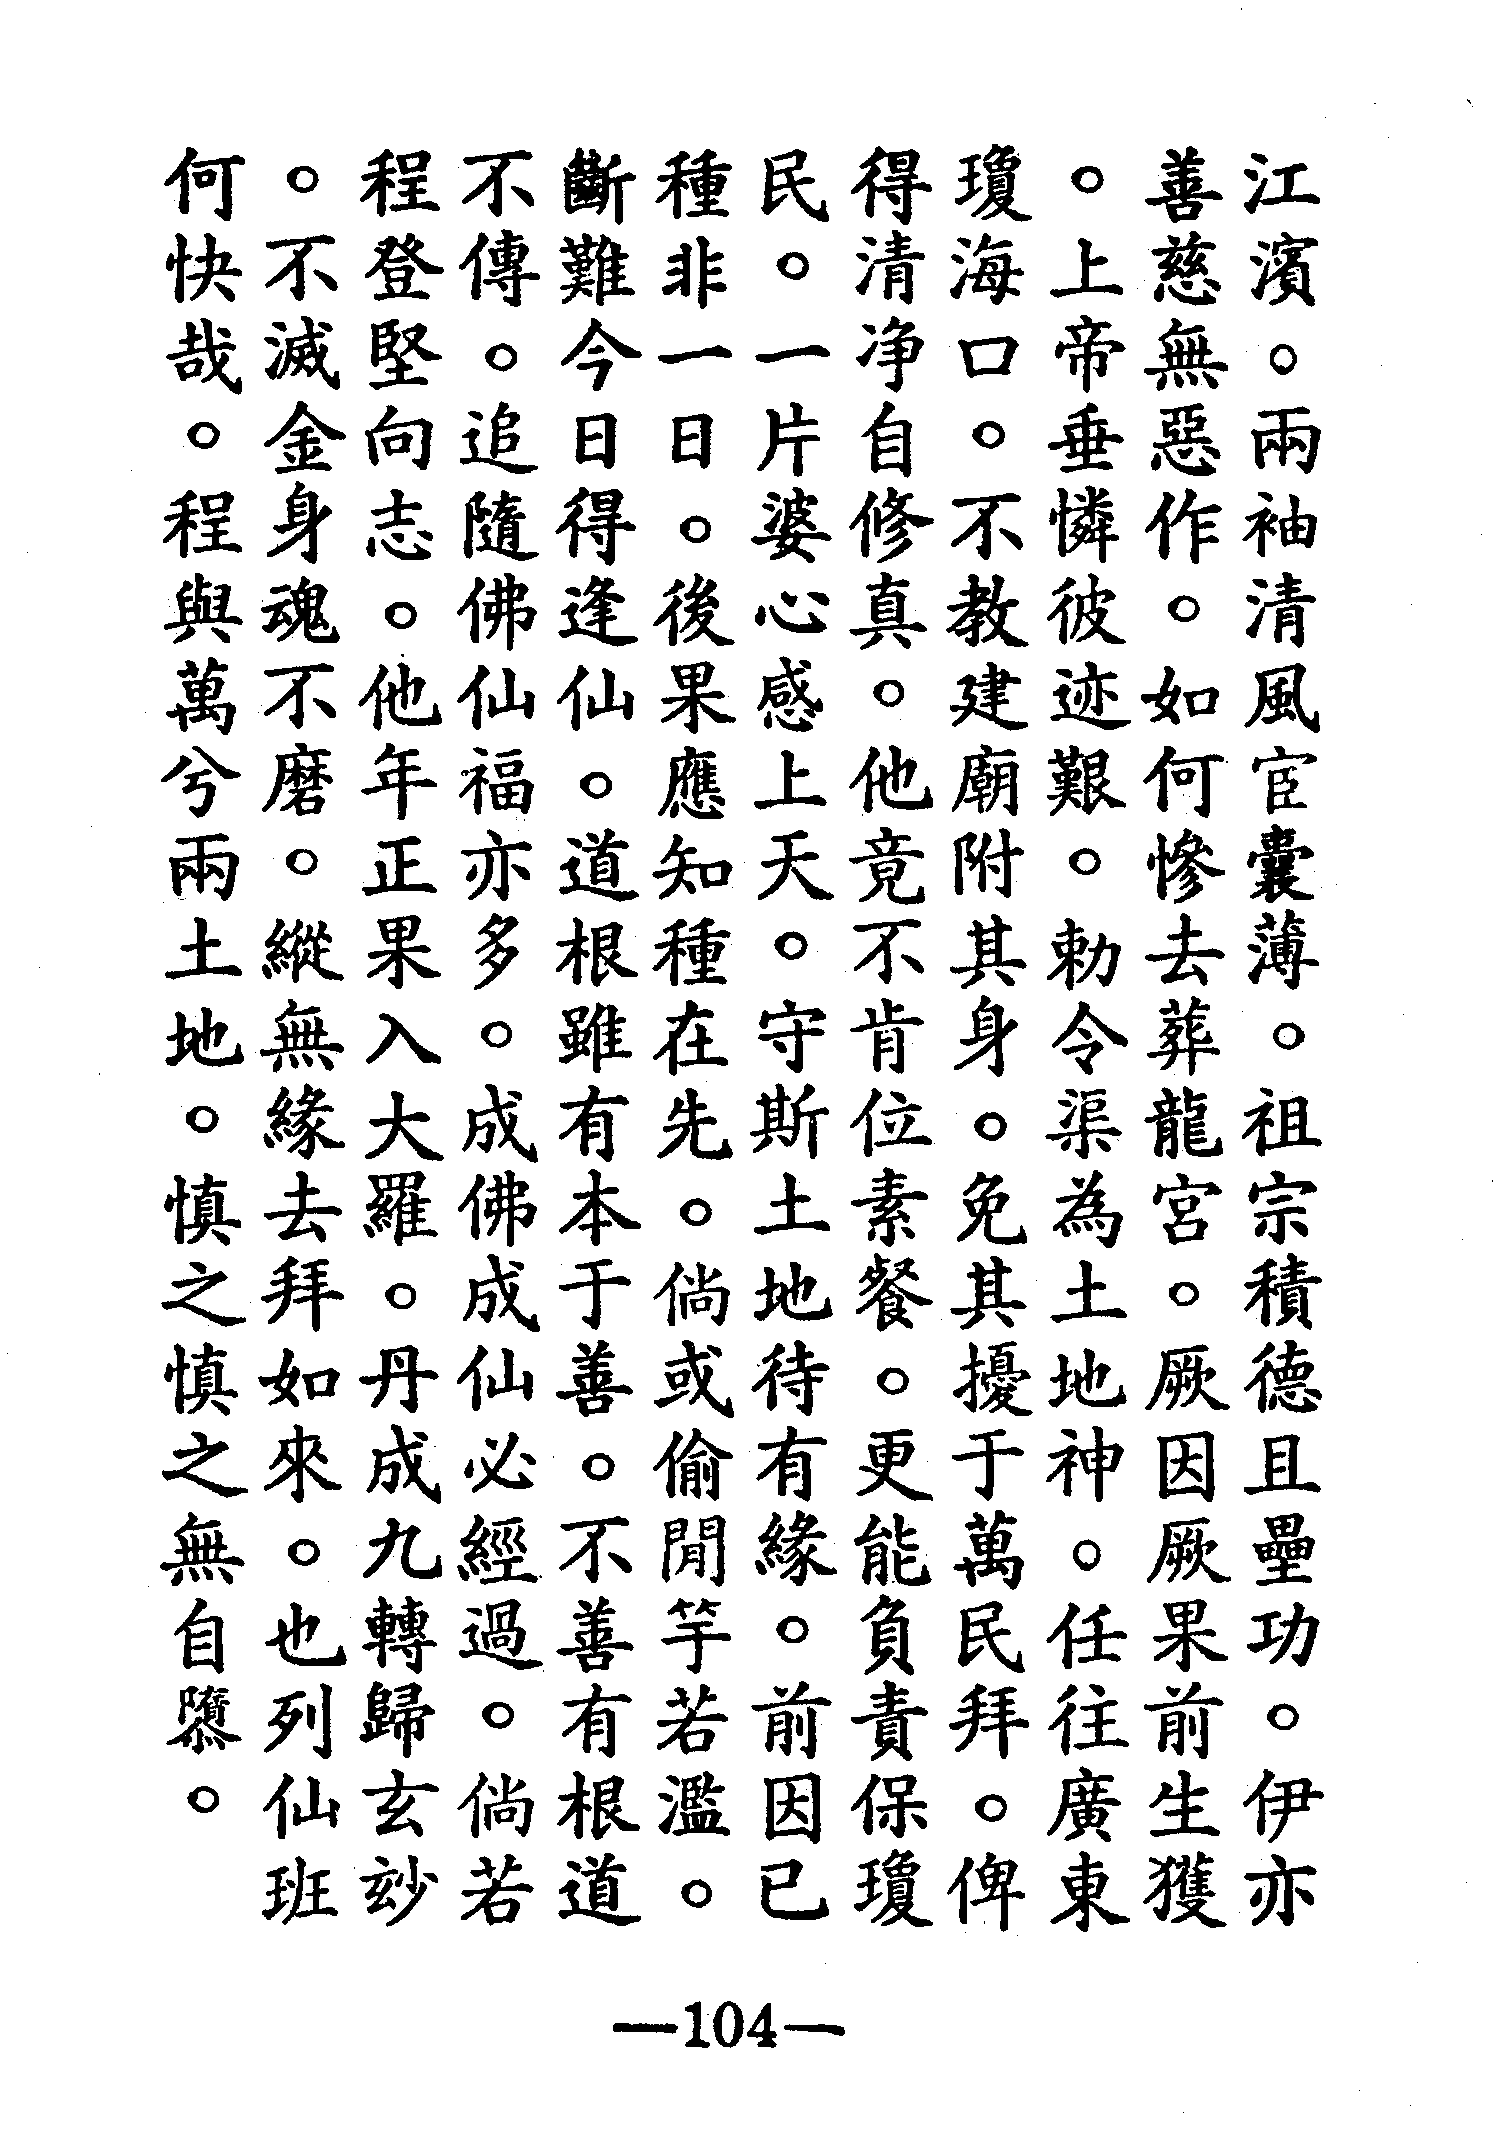 江濱。兩袖清風宦囊薄。祖宗積德且壘功。伊亦
善慈無惡作。如何慘去葬龍宮。厥因厥果前生獲
。上帝垂憐彼迹艱。勅令渠為土地神。任往廣東
瓊海口。不教建廟附其身。免其擾于萬民拜。俾
得清净自修真。他竟不肯位素餐。更能負責保瓊
民。一片婆心感上天。守斯土地待有緣。前因已
種非一日。後果應知種在先。倘或偷閒竽若濫。
斷難今日得逢仙。道根雖有本于善。不善有根道
不傳。追隨佛仙福亦多。成佛成仙必經過。倘若
程登堅向志。他年正果入大羅。丹成九轉歸玄玅
。不滅金身魂不磨。縱無緣去拜如來。也列仙班
何快哉。程與萬兮兩土地。慎之慎之無自隳。
—104—